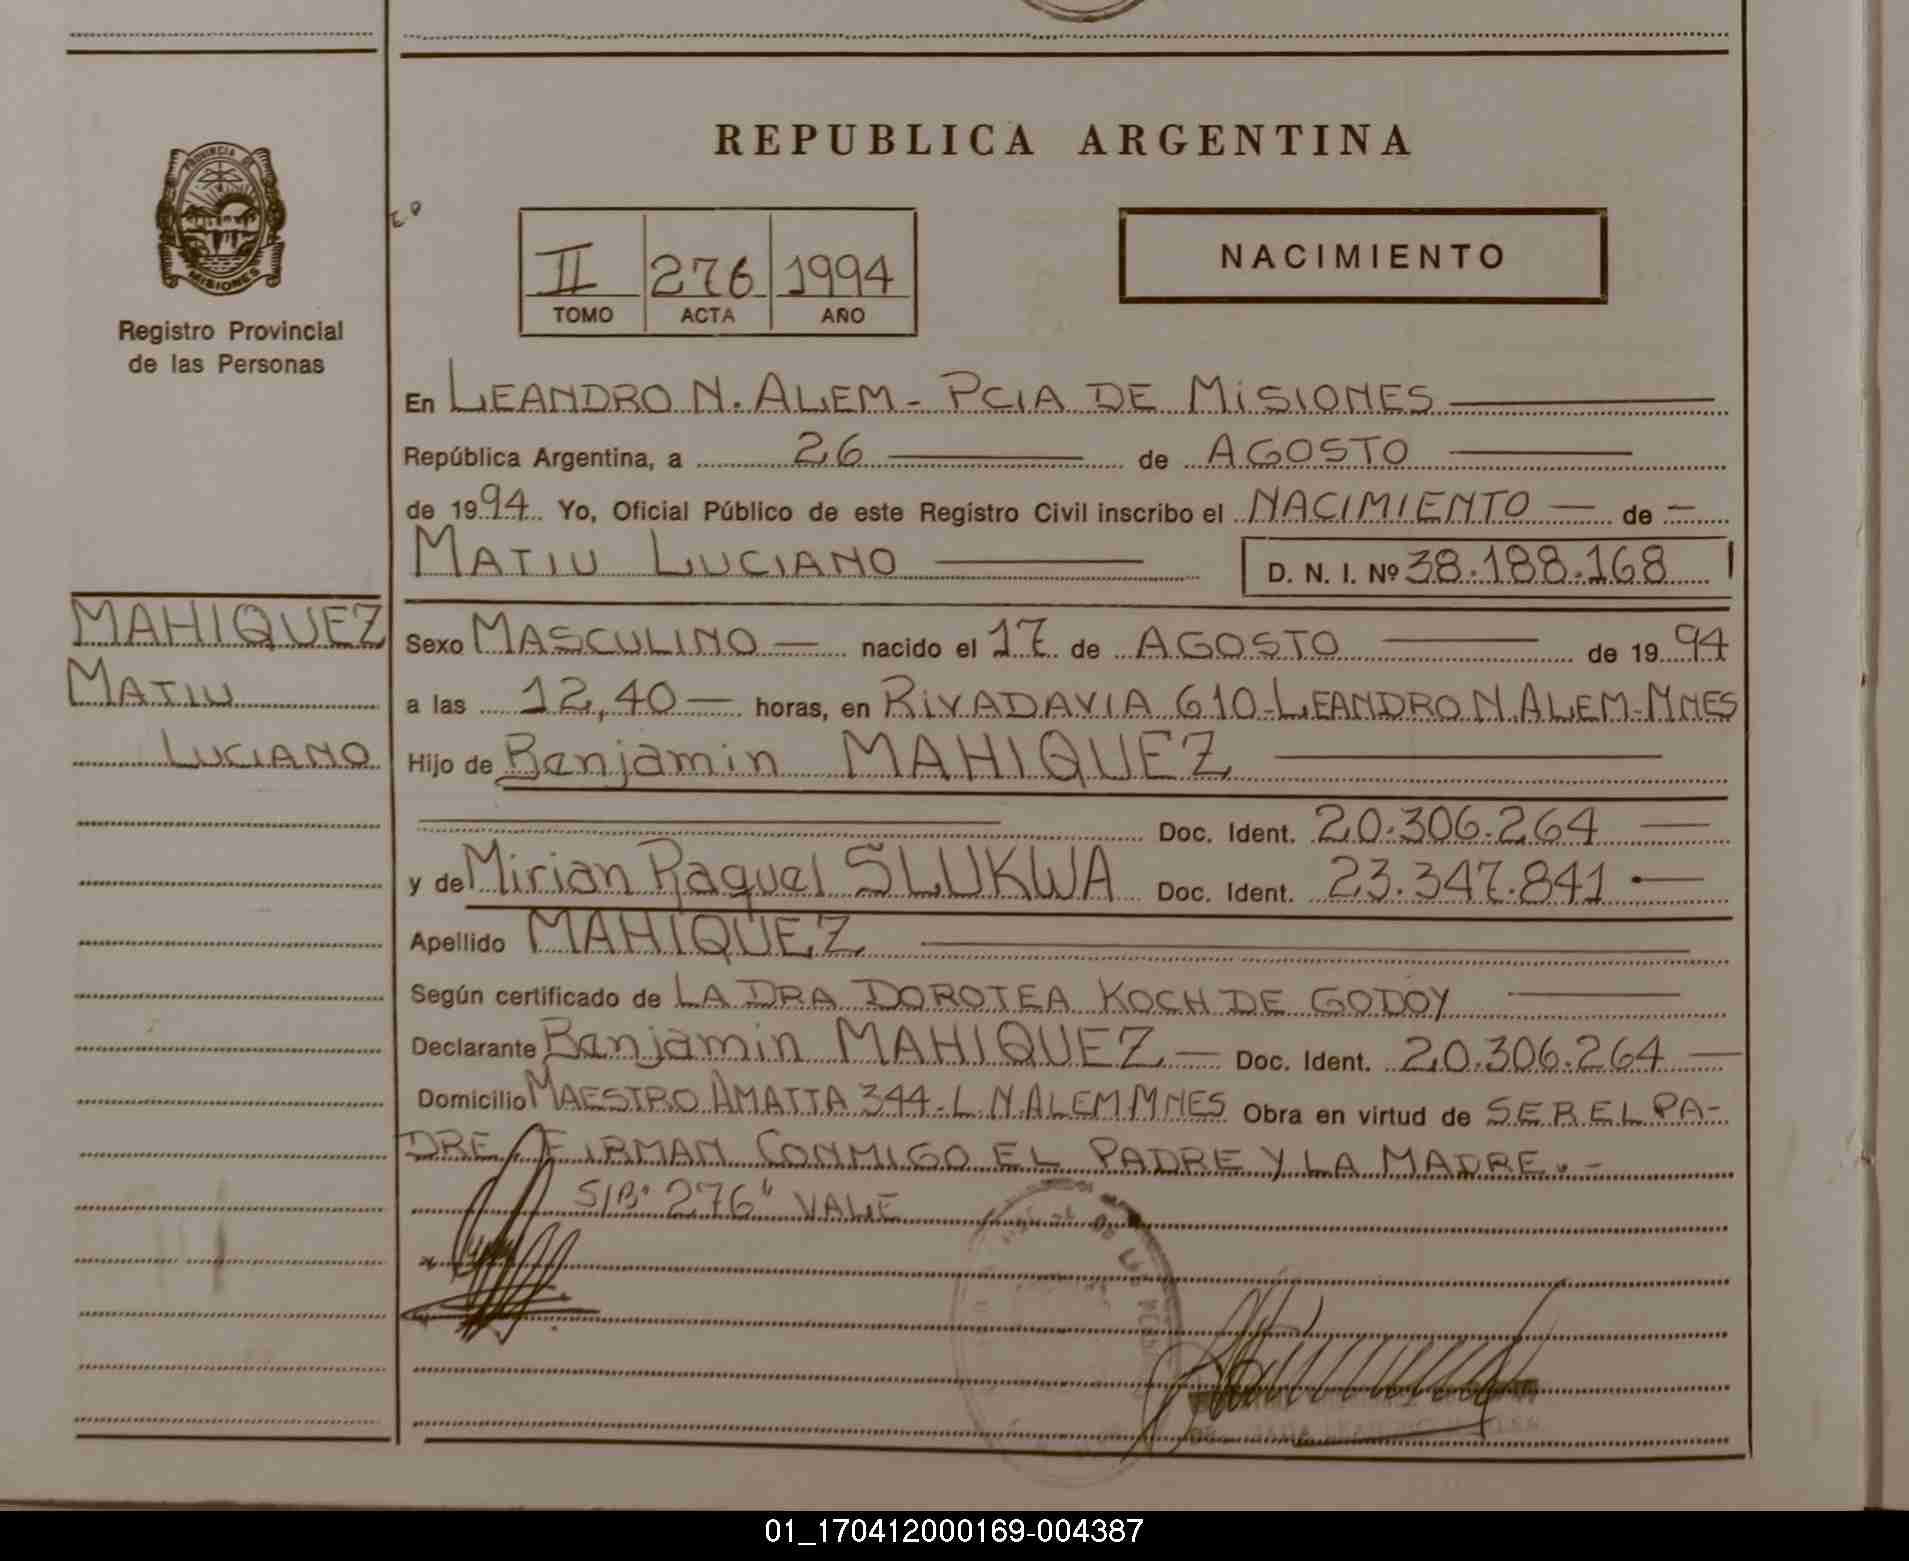 REPUBLICA ARGENTINA
PROVINCIA DE
MISIONES
Registro Provincial
de las Personas
II 276 1994
TOMO ACTA AÑO
NACIMIENTO
En LEANDRO N. ALEM - PCIA DE MISIONES
República Argentina, a 26 de AGOSTO
de 1994 Yo, Oficial Público de este Registro Civil inscribo el NACIMIENTO — de —
MATIU LUCIANO D. N. I. Nº 38.188.168
MAHIQUEZ
MATIU
LUCIANO
Sexo MASCULINO — nacido el 17 de AGOSTO de 1994
a las 12,40 — horas, en RIVADAVIA 610-LEANDRO N. ALEM-MNES
Hijo de Benjamin MAHIQUEZ
Doc. Ident. 20.306.264
y de Mirian Raquel SLUKWA Doc. Ident. 23.347.841
Apellido MAHIQUEZ
Según certificado de LA DRA DOROTEA KOCH DE GODOY
Declarante Benjamin MAHIQUEZ — Doc. Ident. 20.306.264 —
Domicilio MAESTRO AMATTA 344-L N. ALEM MNES Obra en virtud de SER EL PA-
DRE, FIRMAN CONMIGO EL PADRE Y LA MADRE.-
S/Bº 276" VALE
01_170412000169-004387